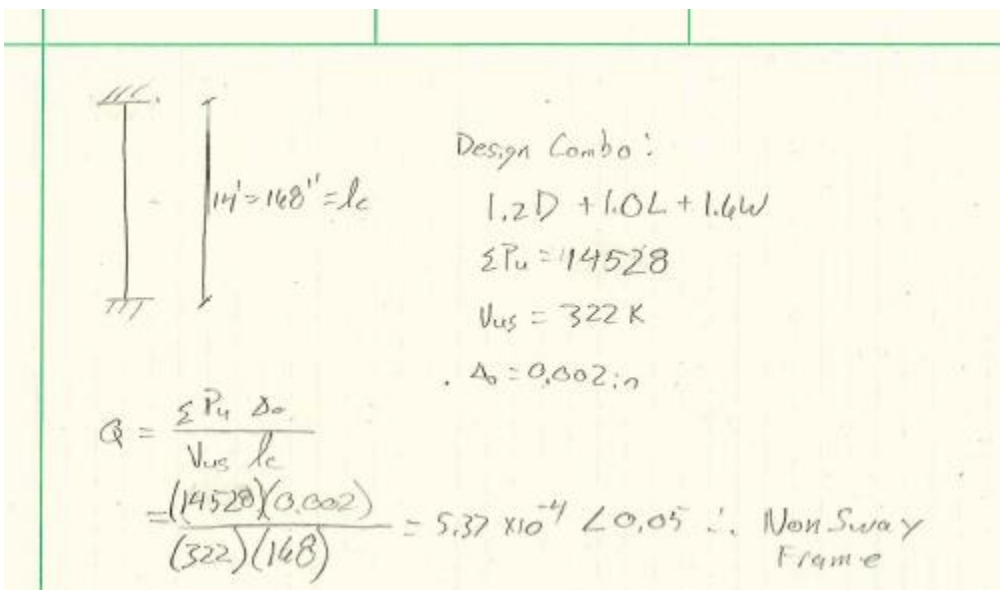 14' = 168" = lc
Design Combo:
1.2D + 1.0L + 1.6W
ΣPu = 14528
Vus = 322 K
Δo = 0.002in
Q = ΣPu Δo / Vus lc
= (14528)(0.002) / (322)(168) = 5.37 x10^-4 < 0.05 ∴ Non Sway
Frame